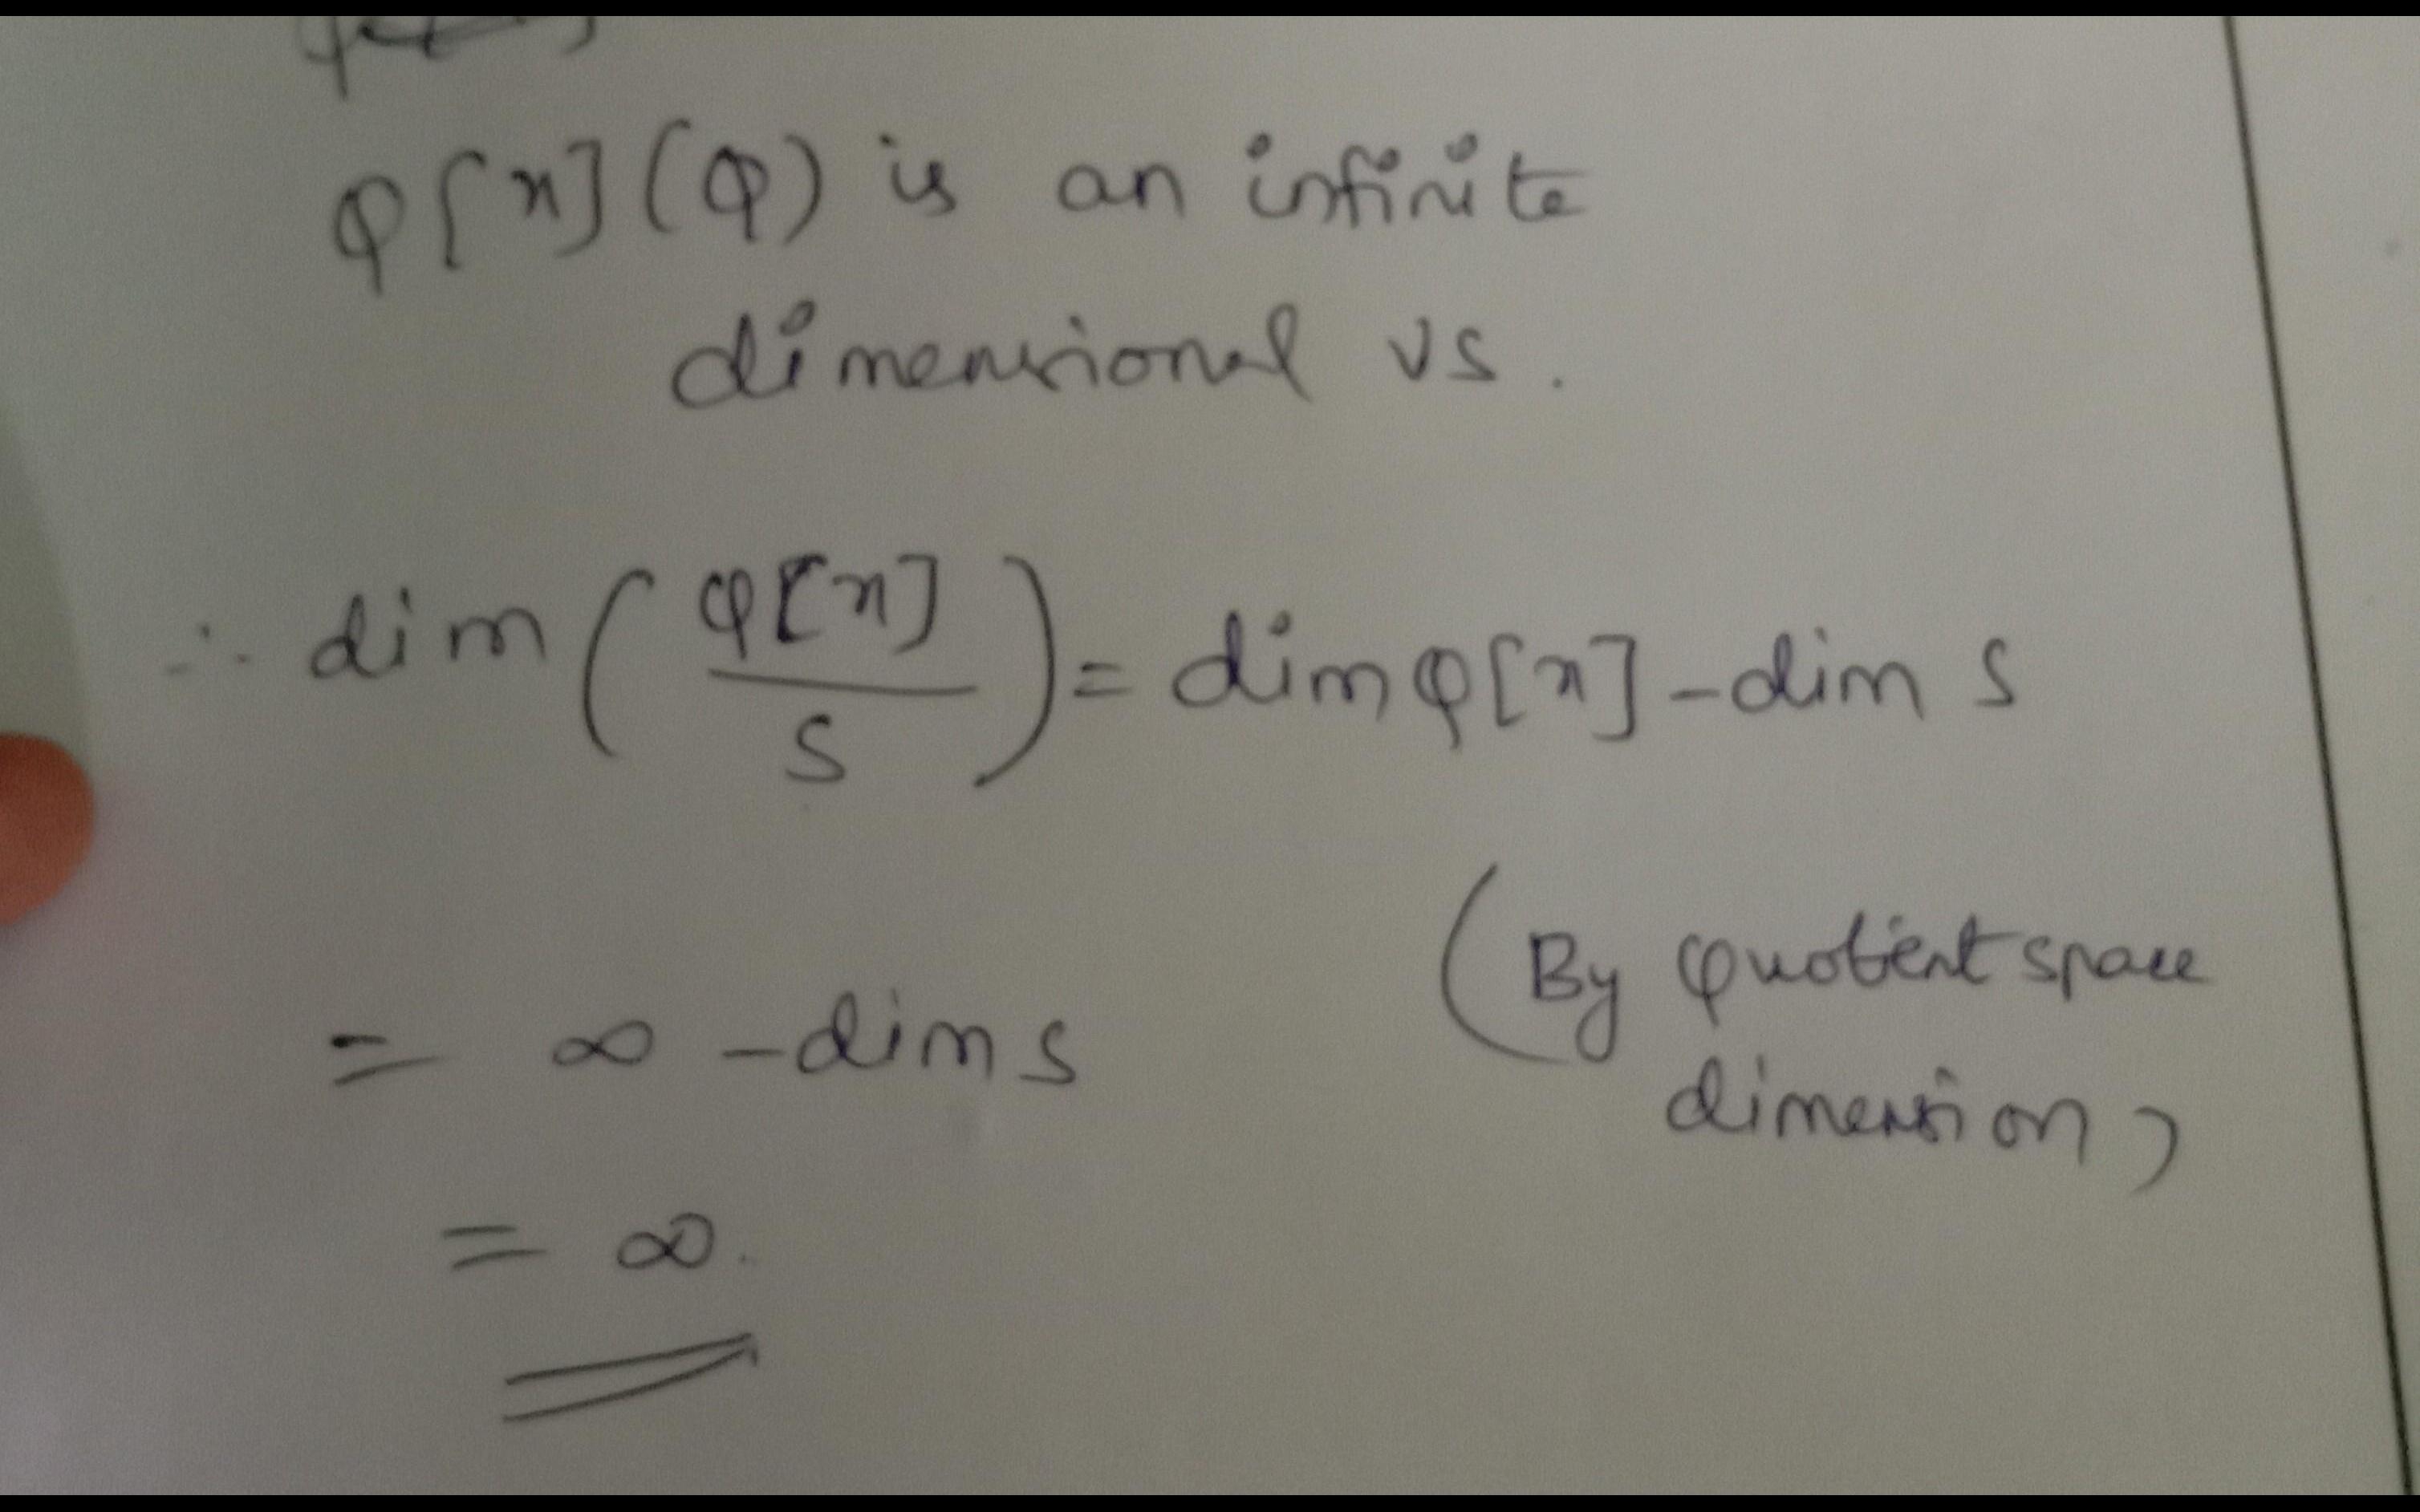 Q[x](Q) is an infinite
dimensional vs.
∴ dim (Q[x]/S) = dim Q[x] - dim S
(By Quotient space
= ∞ - dim S
dimension)
= ∞.